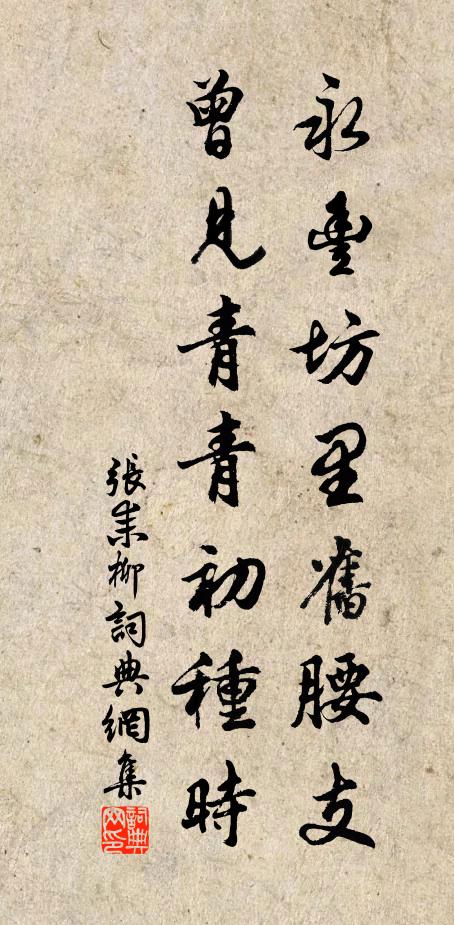 永豐坊里舊腰支
曾見青青初種時
張耒柳詞典網集
詞典网印